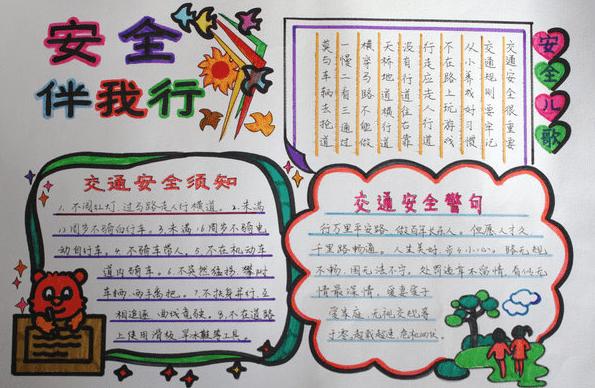 安全
伴我行
安全儿歌
交通安全很重要
交通规则要牢记
从小养成好习惯
不在路上玩游戏
行走应走人行道
没有行道往右靠
天桥地道横行道
横穿马路不能做
一慢二看三通过
莫与车辆去抢道
交通安全须知
1.不闯红灯,过马路走人行横道。2.未满
12周岁不骑自行车。3.未满16周岁不骑电
动自行车。4.不骑车带人。5.不在机动车
道内骑车。6.不突然猛拐,攀附
车辆,两手离把。7.不扶身并行,互
相追逐,曲线竞驶。8.不在道路
上使用滑板,旱冰鞋等工具。
交通安全警句
行万里平安路,做百年长在人。但愿人才久
千里路畅通。人生美好,步步小心。路无规
不畅,国无法不宁。处罚违章不留情,看似无
情最深情。爱妻爱子
爱家庭,无视交规等
于零。超载超速,危机四伏